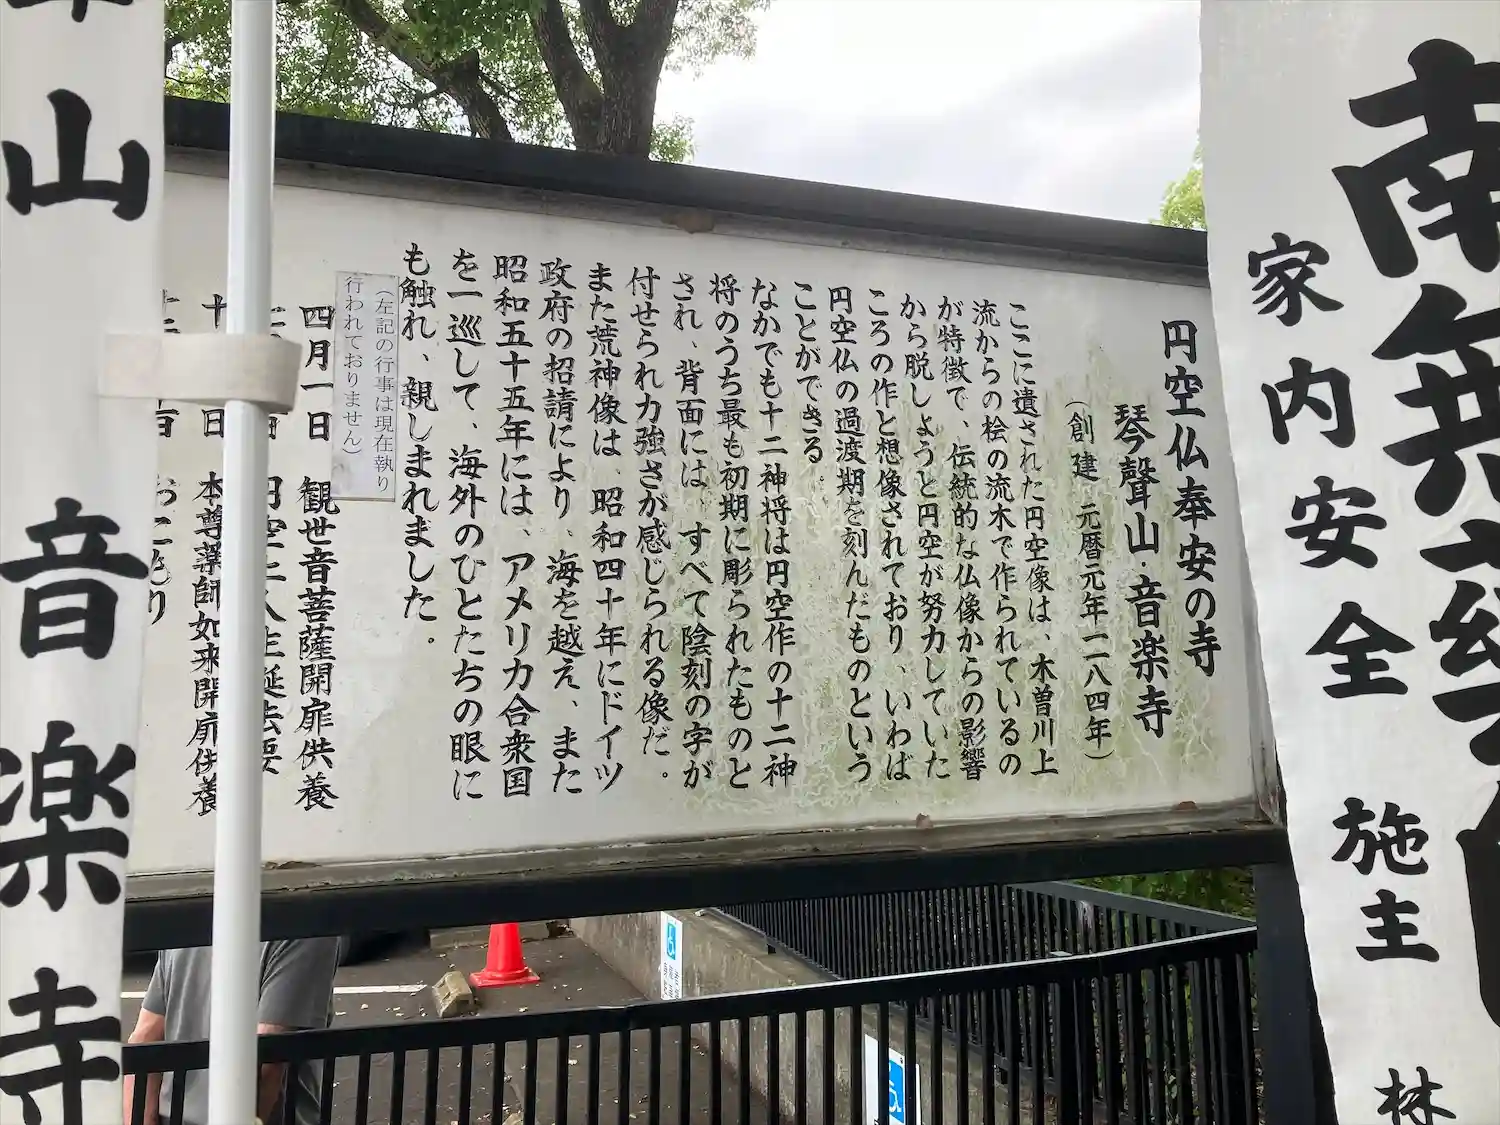 円空仏奉安の寺
琴聲山・音楽寺
（創建 元暦元年一一八四年）
ここに遺された円空像は、木曽川上
流からの桧の流木で作られているの
が特徴で、伝統的な仏像からの影響
から脱しようと円空が努力していた
ころの作と想像されており、いわば
円空仏の過渡期を刻んだものという
ことができる。
なかでも十二神将は円空作の十二神
将のうち最も初期に彫られたものと
され、背面には、すべて陰刻の字が
付せられ力強さが感じられる像だ。
また荒神像は、昭和四十年にドイツ
政府の招請により、海を越え、また
昭和五十五年には、アメリカ合衆国
を一巡して、海外のひとたちの眼に
も触れ、親しまれました。
（左記の行事は現在執り
行われておりません）
四月一日 観世音菩薩開扉供養
日 本尊薬師如来開扉供養
おこもり
南無
家内安全 施主 林
山 音楽寺